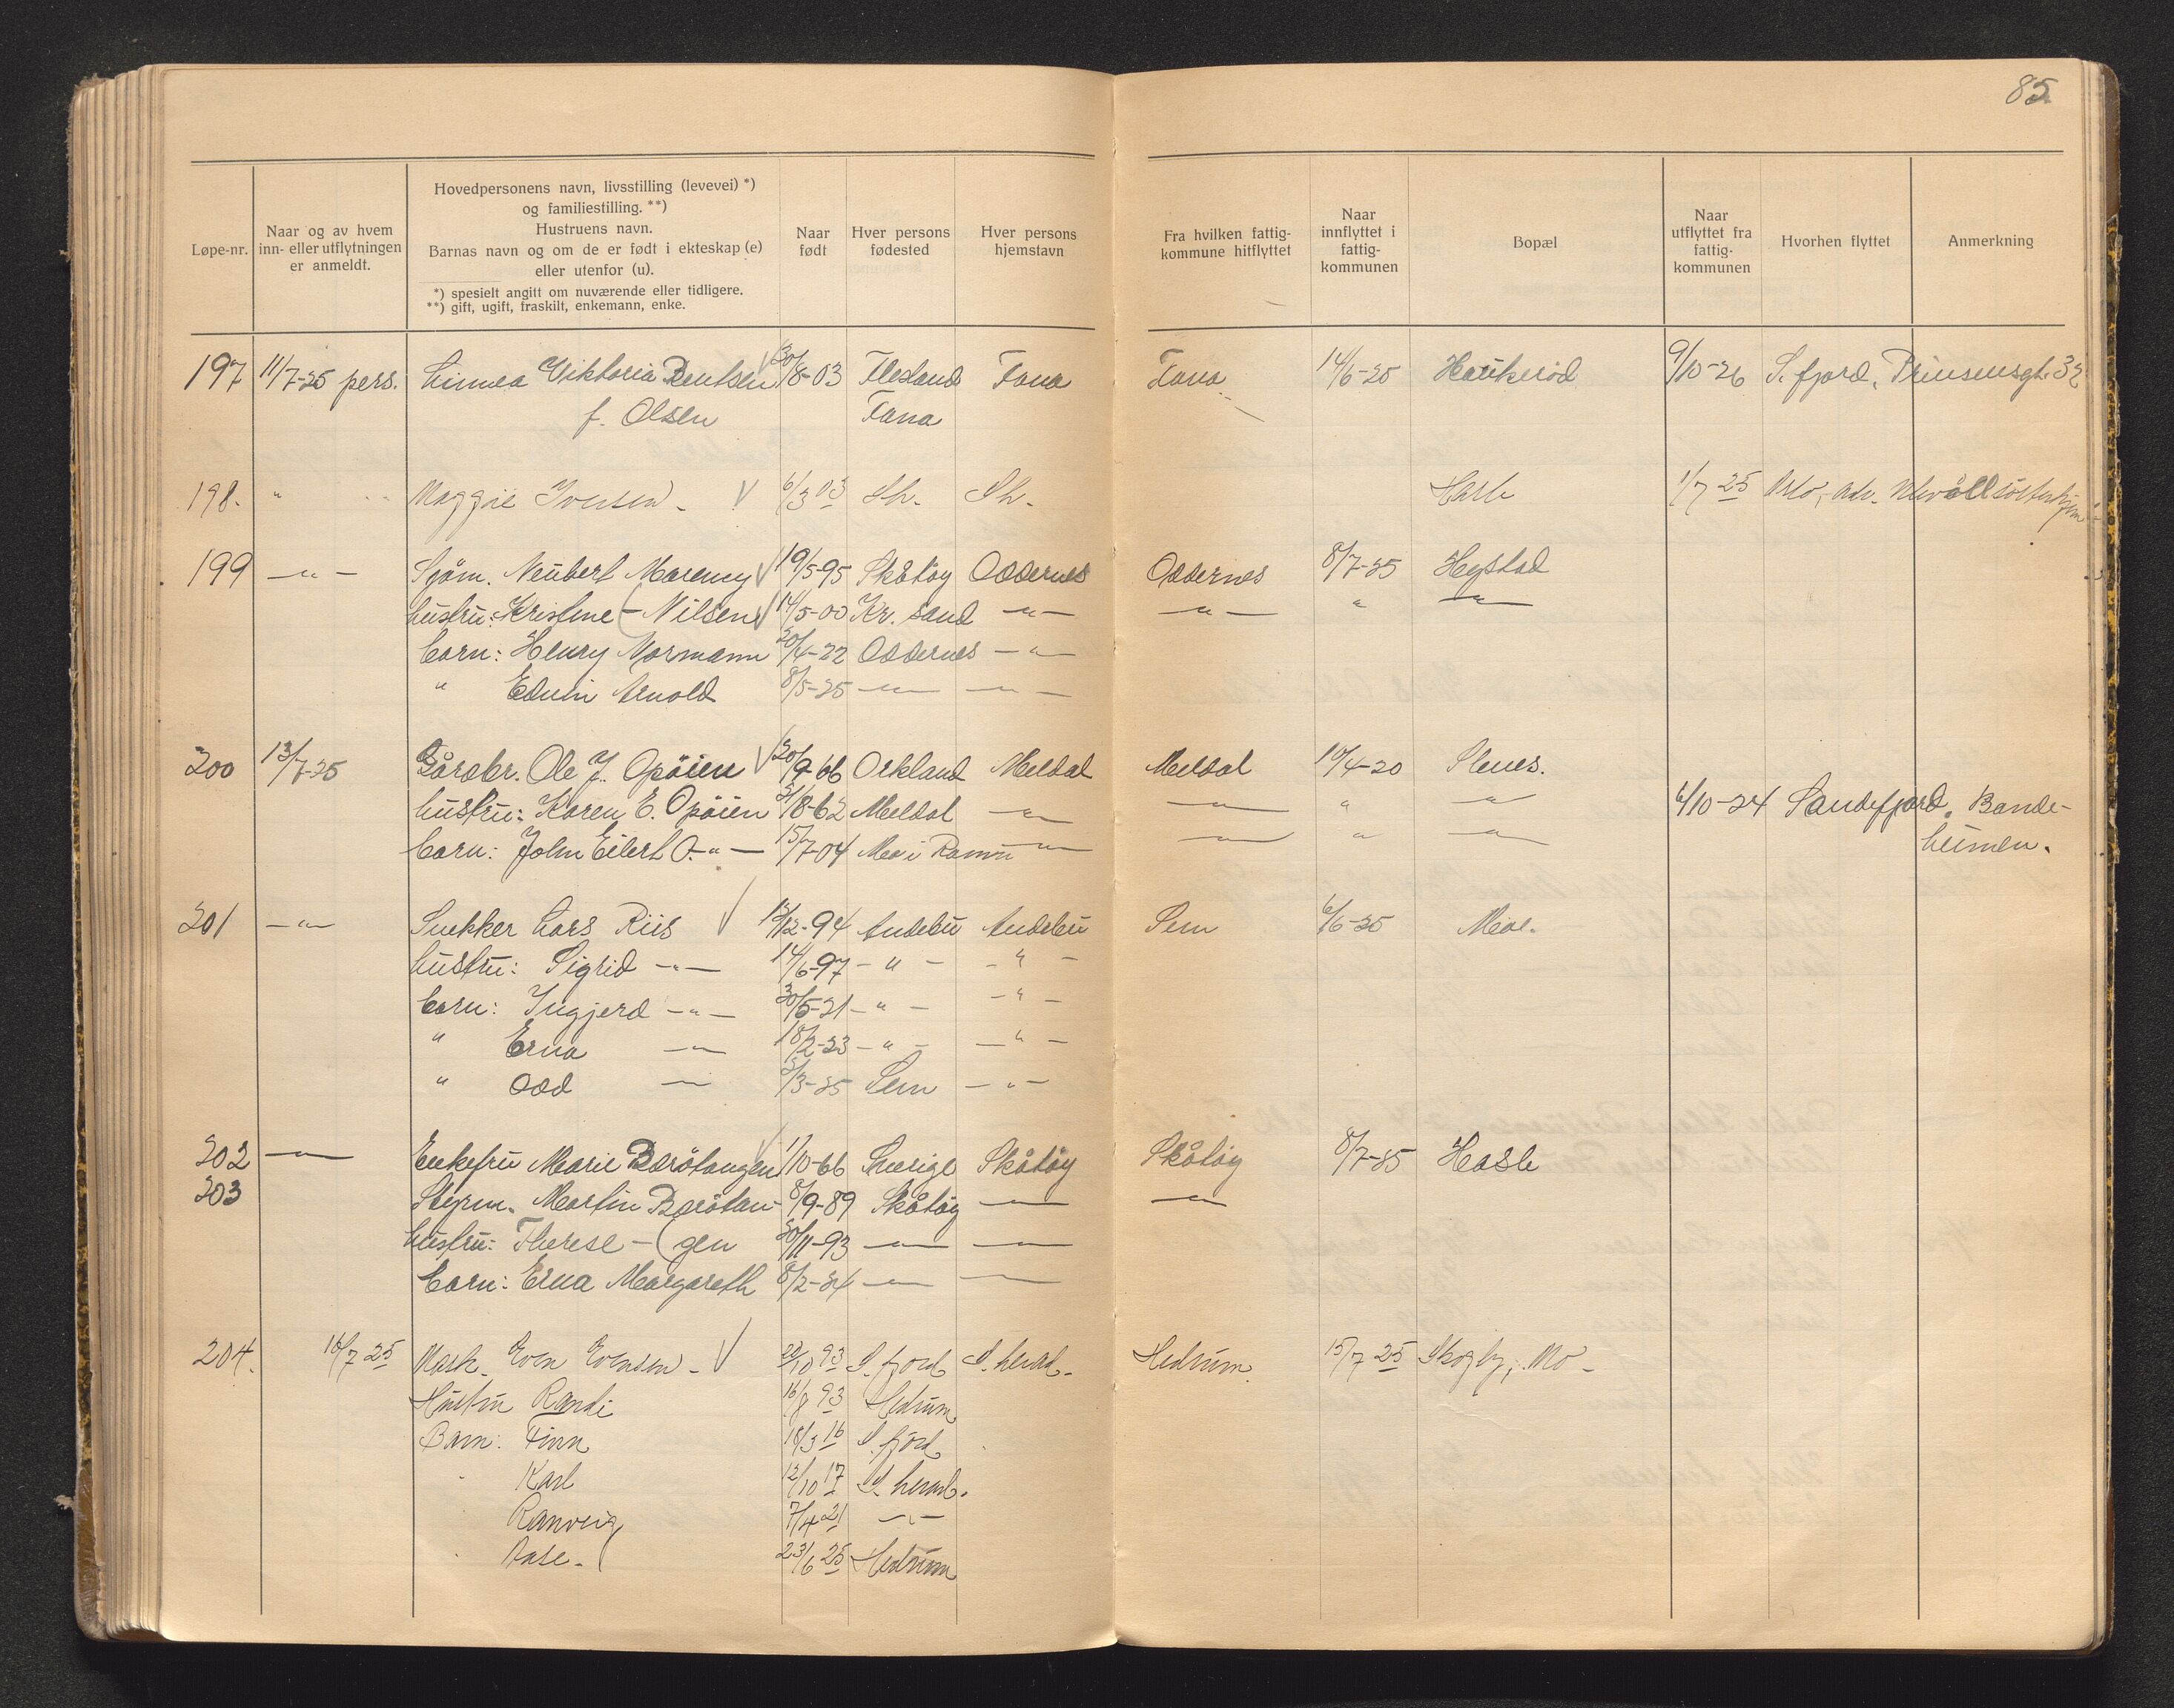 85.
Løpe-nr.
Naar og av hvem inn- eller utflytningen er anmeldt.
Hovedpersonens navn, livsstilling (levevei) *)
og familiestilling. **)
Hustruens navn.
Barnas navn og om de er født i ekteskap (e)
eller utenfor (u).
*) spesielt angitt om nuværende eller tidligere.
**) gift, ugift, fraskilt, enkemann, enke.
Naar født
Hver persons fødested
Hver persons hjemstavn
Fra hvilken fattig-kommune hitflyttet
Naar innflyttet i fattig-kommunen
Bopæl
Naar utflyttet fra fattig-kommunen
Hvorhen flyttet
Anmerkning
197 11/7-25 pers. Linnea Viktoria Bentsen 30/8-03 Flesland Fana Fana 14/6-25 Haukerød 9/10-26 S.fjord, Prinsensgt. 32
f. Olsen Fana
198. " " Maggie Iversen - 6/3 03 Sh. Sh. Hasle 1/7 25 Oslo, adr. Ullevål søsterhjem
199 -"- Sjøm. Neubert Mareng 19/5-95 Skåtøy Oddernes Oddernes 8/7-25 Hystad
hustru: Kristine - Nilsen 14/5-00 Kr.sand -"- -"- " -"-
barn: Henry Normann 20/4-22 Oddernes -"-
" Edvin Arnold 8/5-25 -"- -"-
200 13/7-25 Gårdbr. Ole J. Opöien 20/9-66 Orkland Meldal Meldal 10/4-20 Stenes.
hustru: Karen E. Opöien 31/8-62 Meldal -"- -"- " -"- 6/10-24 Sandefjord. Bonde-
barn: John Eilert O. -"- 15/7-04 Mo i Rana -"- -"- " -"- heimen.
201 -"- Snekker Lars Riis 13/12-94 Andebu Andebu Sem 6/6-25 Moe.
hustru: Sigrid -"- 14/6-97 -"- -"-
barn: Ingjerd -"- 30/5-21 -"- -"-
" Erna -"- 18/2-23 -"- -"-
" Odd -"- 3/3-25 Sem -"-
202 -"- Enkefru Marie Barötangen 1/10-66 Sverige Skåtöy Skåtöy 8/7-25 Hasle
203 Styrm. Martin Barötan- 8/9-89 Skåtöy -"- -"-
hustru: Therese - (gen 30/11-93 -"- -"-
barn: Erna Margareth 8/2-24 -"- -"-
204. 16/7 25 Mask. Even Evensen - 22/10 93 S.fjord S.herad. Hedrum. 15/7 25 Skogly, Mo -
Hustru Randi 16/8 93 Hedrum
Barn: Finn 18/3 16 S.fjord
" Karl 12/10 17 S.herad.
Ranveig 7/4 21 -"-
" Aase. 23/6 25 Hedrum